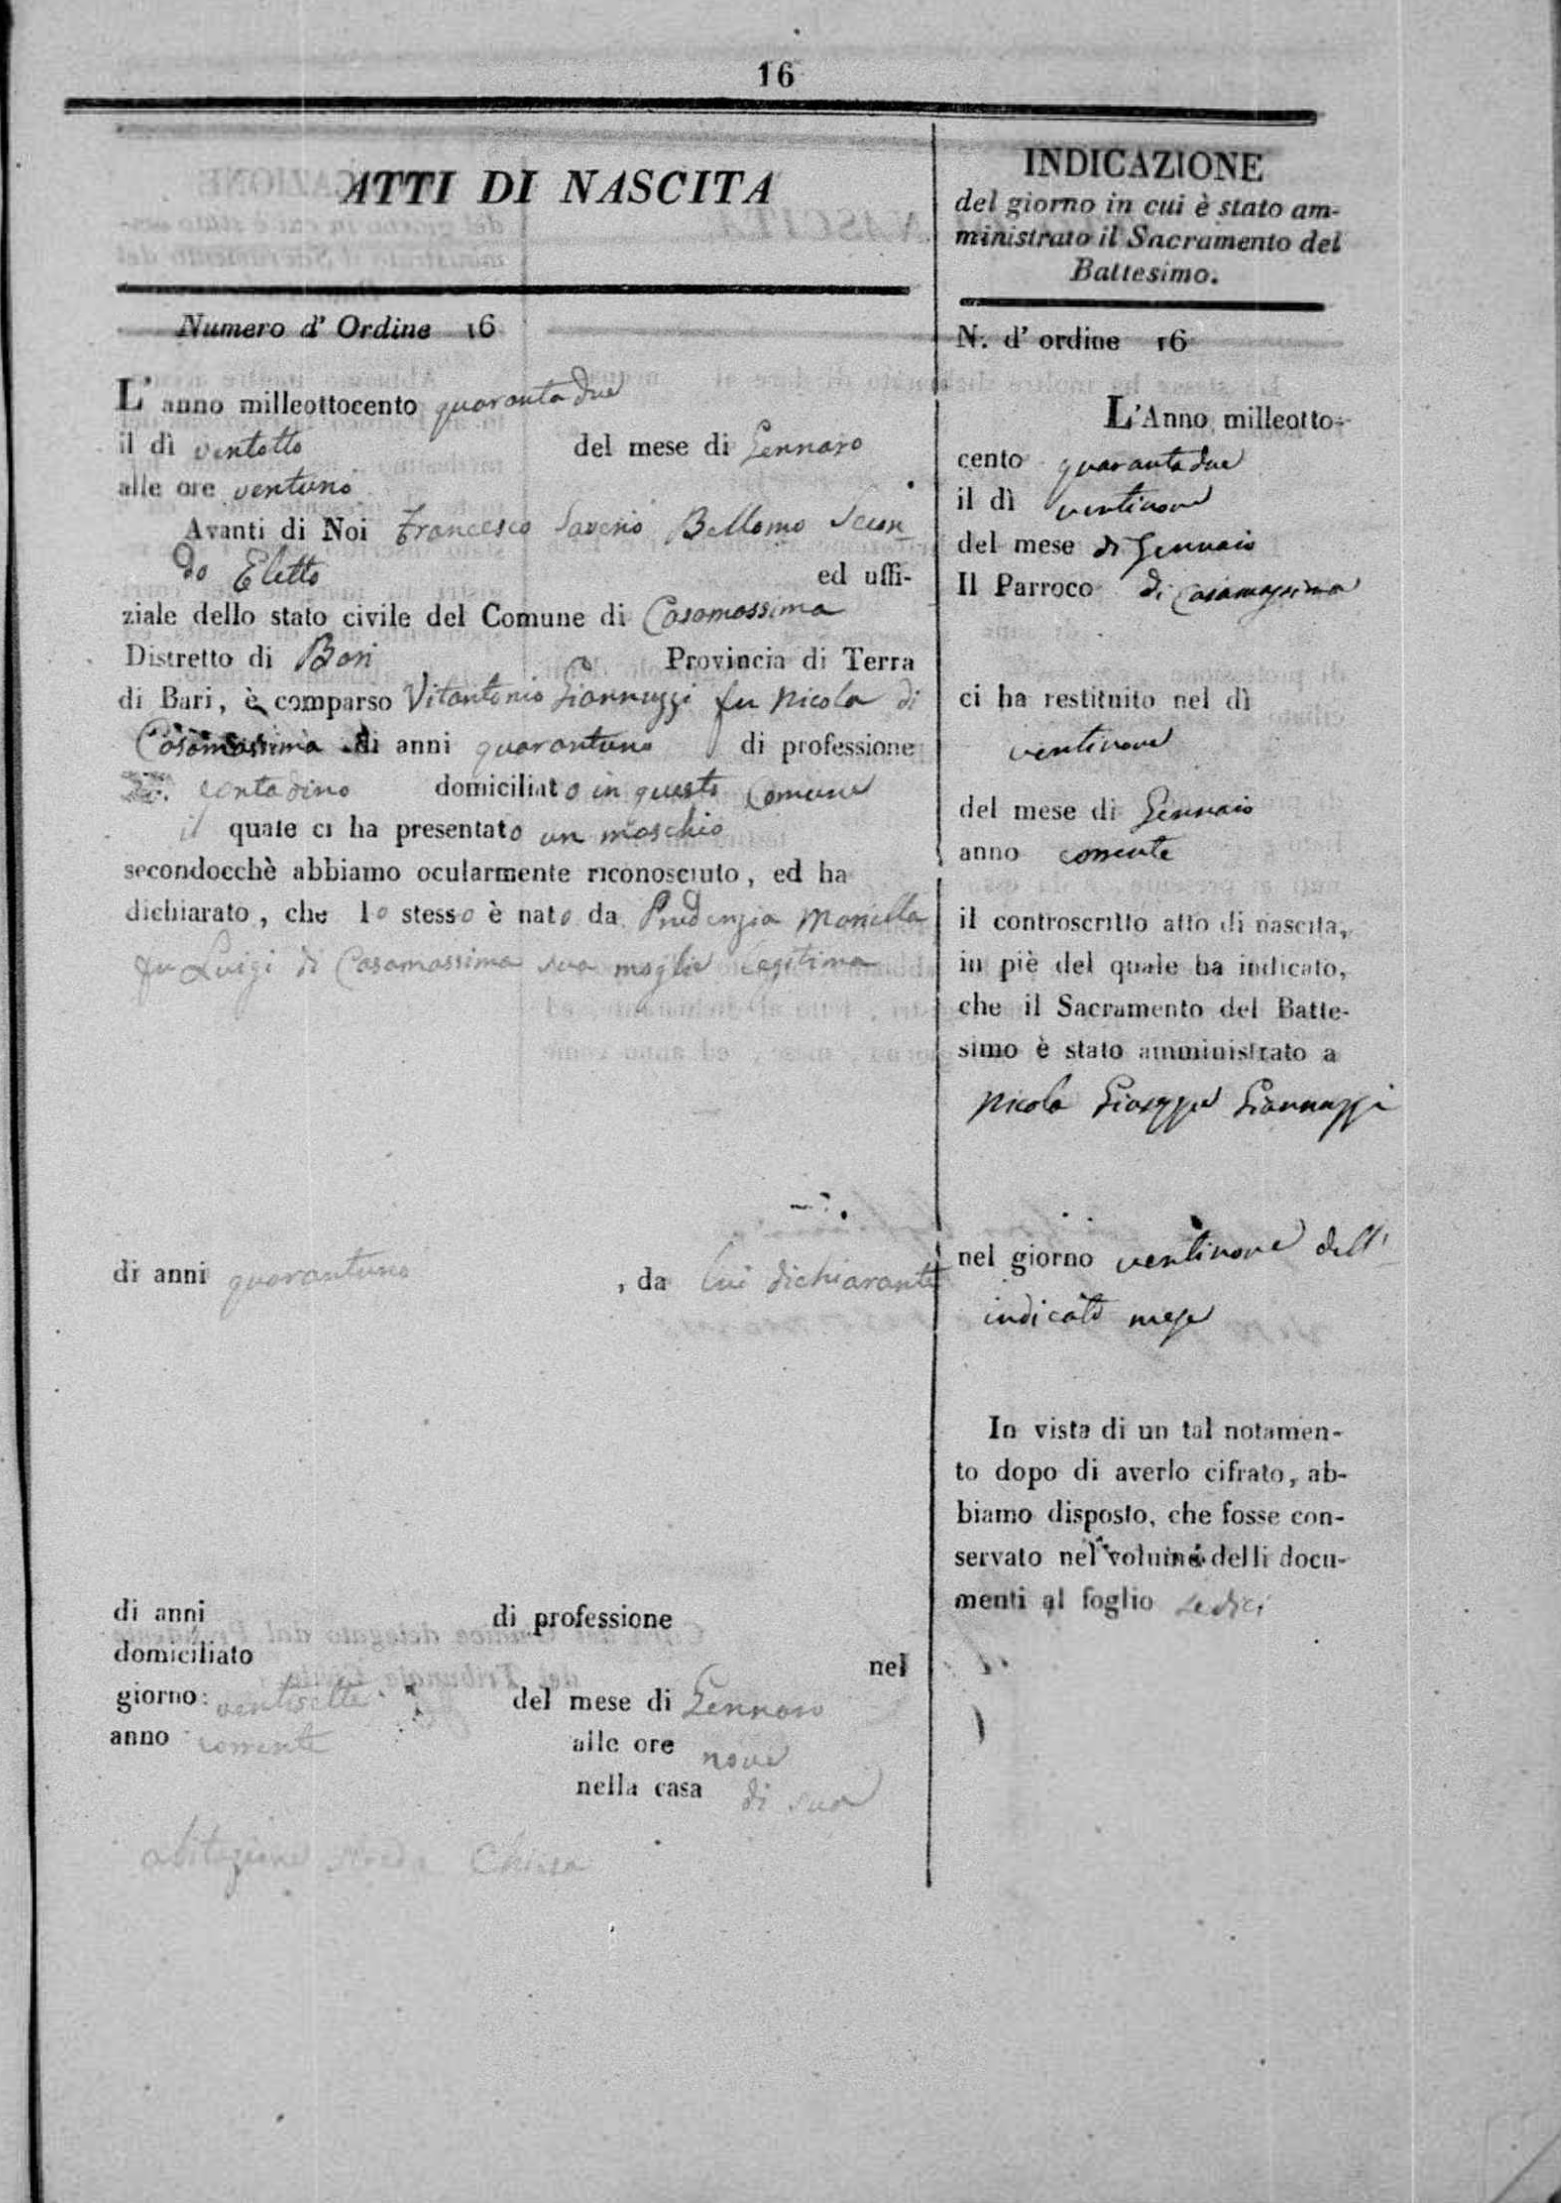 16
ATTI DI NASCITA
Numero d' Ordine 16
L' anno milleottocento quarantadue
il dì ventotto del mese di Gennaro
alle ore ventuno
Avanti di Noi Francesco Saverio Bellomo Secon-
do Eletto ed uffi-
ziale dello stato civile del Comune di Casamassima
Distretto di Bari Provincia di Terra
di Bari, è comparso Vitantonio Giannuzzi fu Nicola di
Casamassima di anni quarantuno di professione
contadino domiciliato in questo Comune
il quale ci ha presentato un maschio
secondocchè abbiamo ocularmente riconosciuto, ed ha
dichiarato, che lo stesso è nato da Prudenzia
fu Luigi di Casamassima sua moglie legitima
di anni quarantuno , da lui dichiarante
di anni di professione
domiciliato nel
giorno ventisette del mese di Gennaro
anno corrente alle ore nove
nella casa di sua
abitazione strada Chiesa
INDICAZIONE
del giorno in cui è stato am-
ministrato il Sacramento del
Battesimo.
N. d' ordine 16
L'Anno milleotto-
cento quarantadue
il dì ventinove
del mese di Gennaio
Il Parroco di Casamassima
ci ha restituito nel dì
ventinove
del mese di Gennaio
anno corrente
il controscritto atto di nascita,
in piè del quale ha indicato,
che il Sacramento del Batte-
simo è stato amministrato a
Nicola Giuseppe Giannuzzi
nel giorno ventinove dell'
indicato mese
In vista di un tal notamen-
to dopo di averlo cifrato, ab-
biamo disposto, che fosse con-
servato nel volume delli docu-
menti al foglio sedici